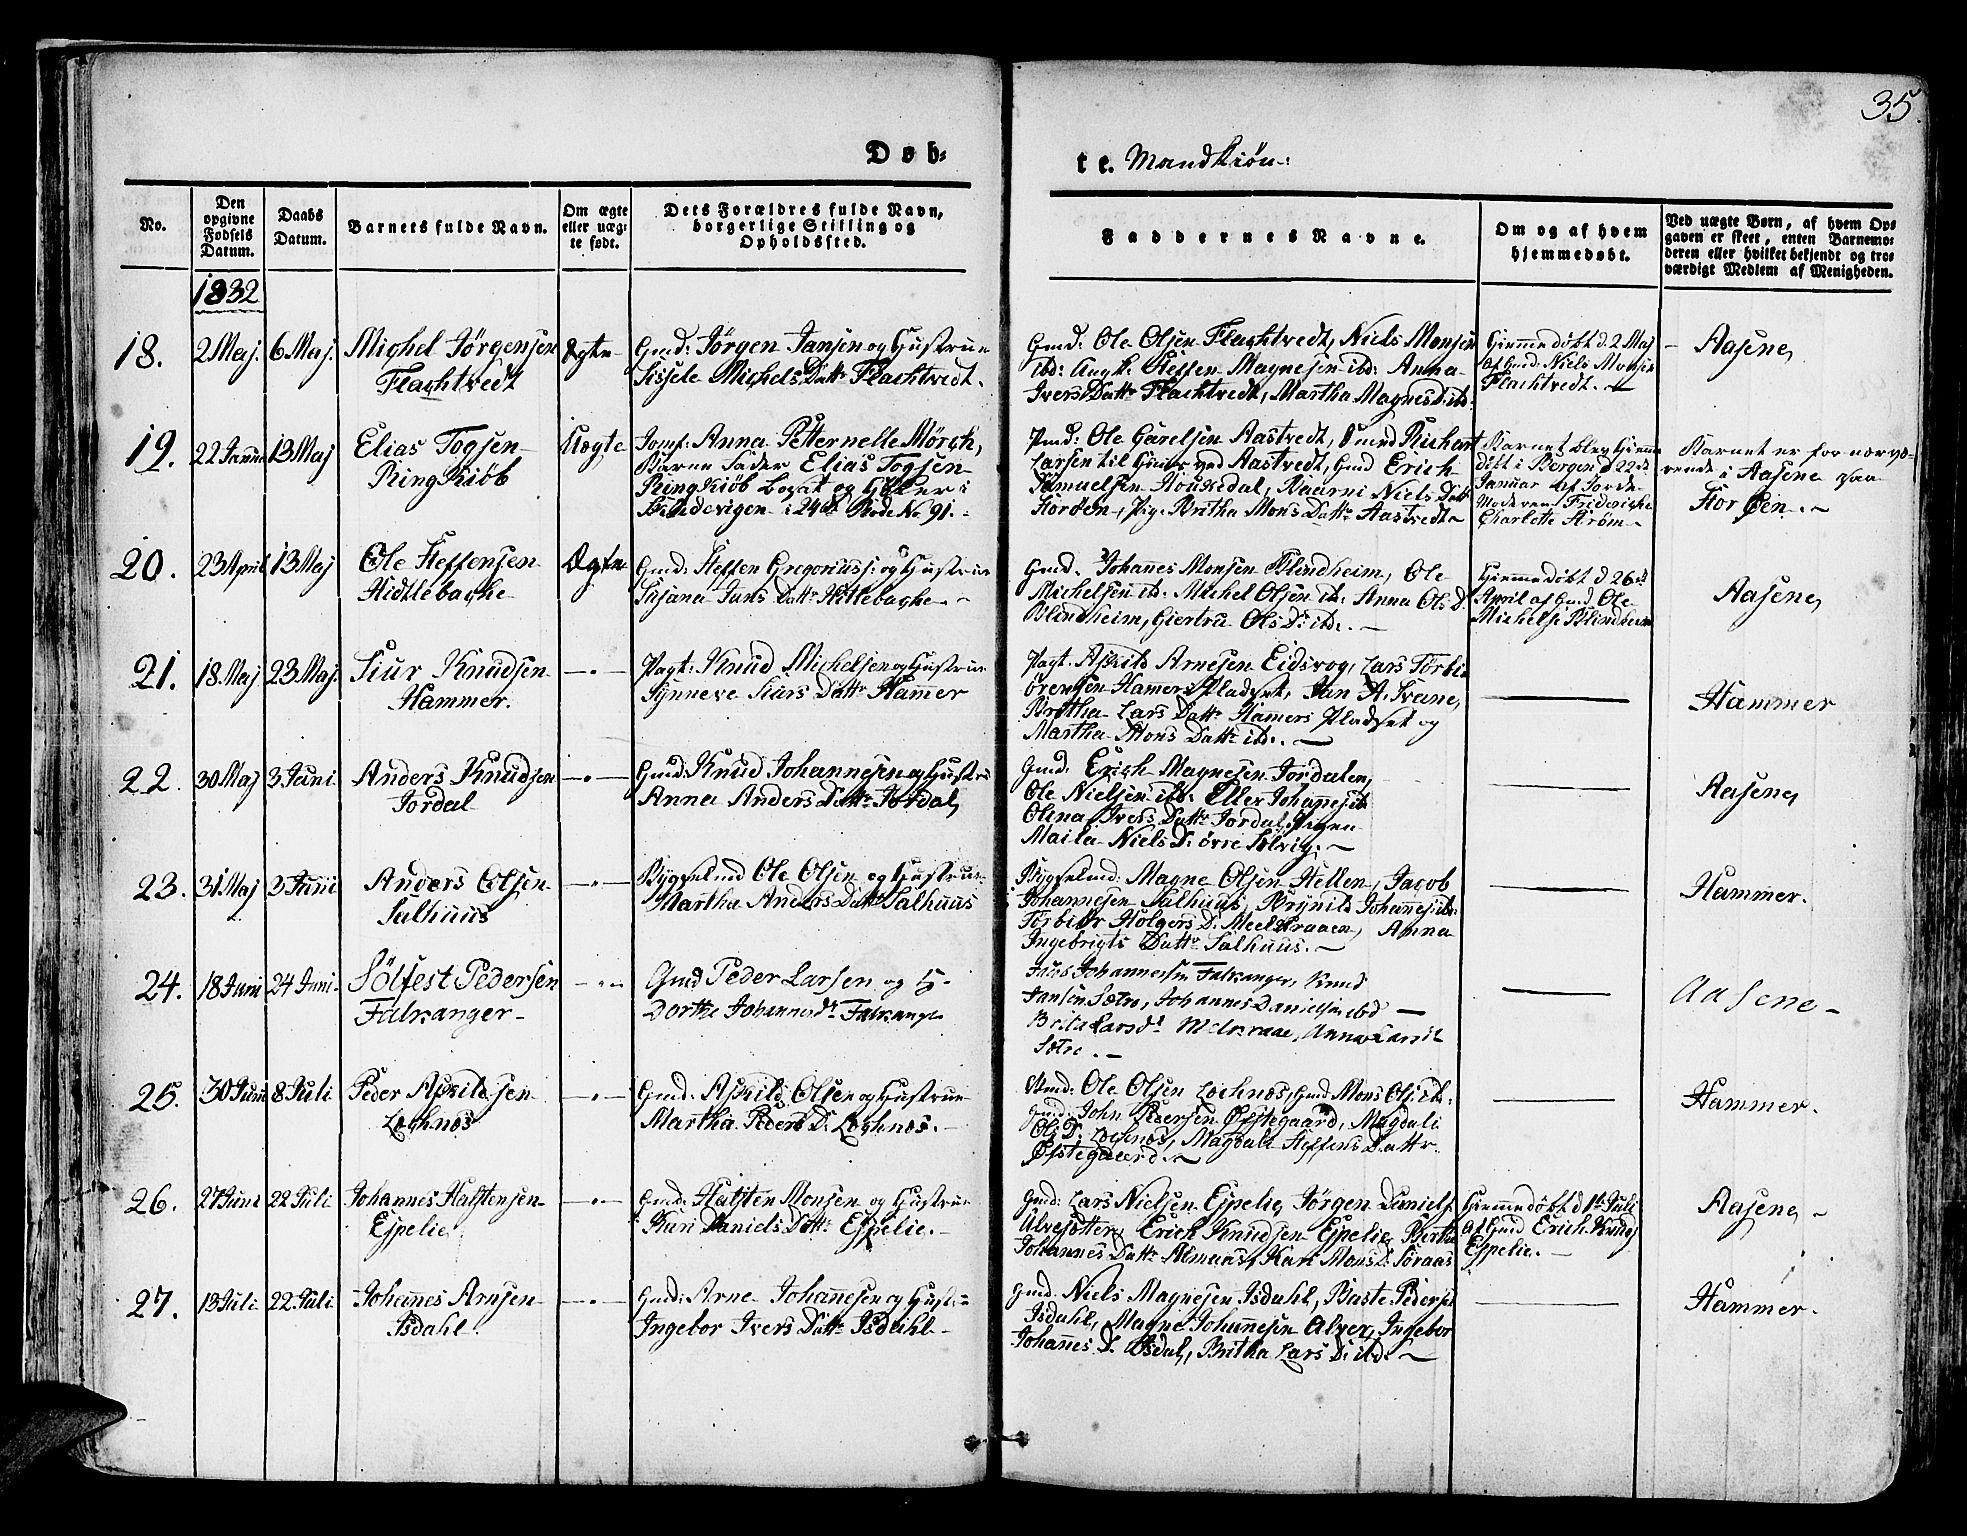 35.
Døb-
te. Mandkiøn:
No.
Den opgivne Fødsels Datum.
Daabs Datum.
Barnets fulde Navn.
Om ægte eller uægte født.
Dets Forældres fulde Navn, borgerlige Stilling og Opholdssted.
Faddernes Navne.
Om og af hvem hjemmedøbt.
Ved uægte Børn, af hvem Opgaven er skeet, enten Barnemoderen eller hvilket bekjendt og troværdigt Medlem af Menigheden.
1832
18. 2 Maj. 6 Maj. Mighel Jørgensen Ægte Gmd: Jørgen Jansen og Hustrue
Flachtvedt Sissele Michels Datt: Flachtvedt.
Gmd: Ole Olsen Flachtvedt, Niels Monsen
ibd: Ungk: Steffen Magnesen ibd: Anna
Ivers Datt: Flachtvedt, Martha Magnes D: ibd:
Hjemmedøbt d. 2 Maj
af Gmd: Niels Monsen
Flachtvedt.
Aasene,
19. 22 Januar 13 Maj Elias Togsen Uægte Jomf: Anna Petternelle Mørch,
RingKiøb Barne Fader Elias Togsen
RingKiøb
i 24de Rode No 91.
Gmd: Ole Garelsen Aastvedt, Smed Richart
Larsen til Huus ved Aastvedt, Gmd Erich
Samuelsen Niels Datt
Pig: Britha Mons Datt: Aastvedt
Barnet blev hjemme
døbt i Bergen d 22de
Januar af Jorde-
Moderen Friderighe
Charlotte Strøm
Barnet er for nærvæ-
rende i Aasene paa
20. 23 April 13 Maj Ole Steffensen Ægte Gmd: Steffen Gregoriuss: og Hustrue
Hidtlebaghe Susana Jans Datt:
Gmd: Johanes Monsen Blindheim, Ole
Michelsen ib: Michel Olsen ib: Anna Ols D.
Blindheim, Giertru Ols D: ib:
Hjemmedøbt d 26de
April af Gmd Ole
Michelse Blindheim
Aasene,
21. 18 Maj 23 Maj. Siur Knudsen Pagt: Knud Michelsen og Hustrue
Hammer. Synneve Siurs Datt: Hamer
Pagt. Askild Arnesen Eidsvog, Lars Torbi
ørensen Hamers Pladset, Jan A. Svane,
Britha Lars Datt: Hamers Pladset og
Martha Mons Datt: ib:
Hammer
22. 30 Maj 3 Juni Anders Knudsen Gmd: Knud Johannesen og Hustrue
Jordal Anna Anders Datt: Jordal,
Gmd: Erich Magnesen Jordalen,
Ole Nielsen ibd: Eller Johannes: ib
Olina Ivers Datt: Jordal, Pigen
Maila Niels D: øvre Sølvig.
Aasene,
23. 31 Maj 3 Juni Anders Olsen Bygselmd Ole Olsen og Hustrue
Salhuus Martha Anders Datt: Salhuus
Bygselmd: Magne Olsen Hellen, Jacob
Johannesen Salhuus, Brynild Johannes: ib:
Torbiør Holgers D: Meelkraaen, Anna
Ingebrigts Datt: Salhuus.
Hammer.
24. 18 Juni 24 Juni. Sölfest Pedersen Gmd Peder Larsen og H-
Falkanger Dorthe Johannesdt. Falkanger
Johannesen Falkanger, Knud
Jansen Sætre, Johannes Danielsen ibd
Brita Larsdt Melkraae, Anna Larsd:
Sætre.
Aasene
25. 30 Juni 8 Juli Peder Askildsen Gmd: Askild Olsen og Hustrue
Lochnøs Martha Peders D: Loghnøs.
Gmd: Ole Olsen Lochnøs, Gmd Mons Ols: ib:
Gmd: John Pedersen Øfstegaard, Magdali
Ols D: Lochnøs, Magdali Steffens Datt:
Øfstegaard.
Hammer.
26. 27 Juni 22 Juli Johannes Halstensen Gmd: Halsten Monsen og Hustrue
Espelie Kari Daniels Datt: Espelie.
Gmd: Lars Nielsen Espelie, Jørgen Daniels:
Ulvesætter, Erich Knudsen Espelie, Bertha
Johannes Datt: Almaas, Kari Mons D: Søraas
Hjemmedøbt d 1te Juli
af Gmd Erich Knuds:
Espelie.
Aasene,
27. 13 Juli 22 Juli Johannes Arnsen Gmd: Arne Johannesen og Hustrue
Isdahl. Ingebor Ivers Datt: Isdahl
Gmd: Niels Magnesen Isdahl, Baste Peders:
Isdahl, Magne Johannesen Alver, Ingebor
Johannes D. Isdal, Britha Lars D: ibd:
Hammer.